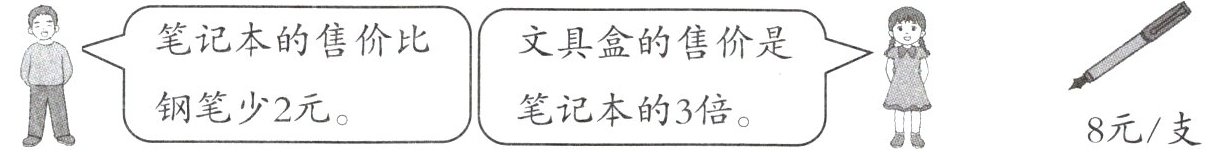 笔记本的售价比
钢笔少2元。
文具盒的售价是
笔记本的3倍。
8元/支